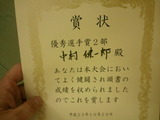 賞状
優秀選手賞2部
中村健一郎 殿
あなたは本大会におい
てよく健闘され頭書の
成績を収められました
のでこれを賞します